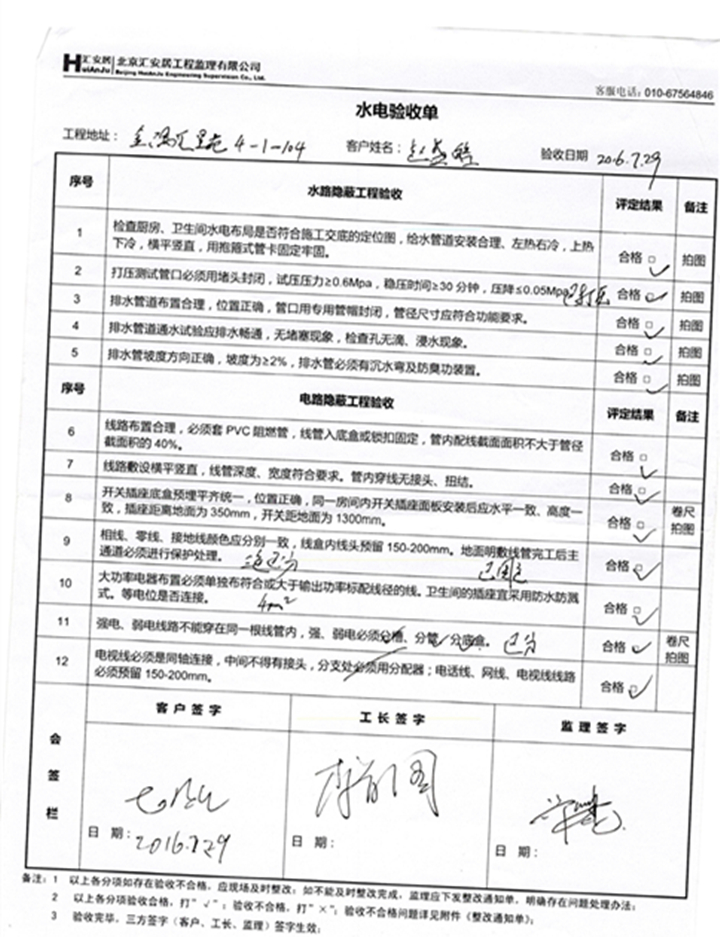 汇安居 北京汇安居工程监理有限公司
HuiAnJu Beijing HuiAnJu Engineering Supervision Co., Ltd.
客服电话：010-67564846
水电验收单
工程地址： 4-1-104 客户姓名： 验收日期 2016.7.29
序号 水路隐蔽工程验收 评定结果 备注
1 检查厨房、卫生间水电布局是否符合施工交底的定位图，给水管道安装合理、左热右冷，上热
下冷，横平竖直，用抱箍式管卡固定牢固。 合格 □ ✓ 拍图
2 打压测试管口必须用堵头封闭，试压压力≥0.6Mpa，稳压时间≥30分钟，压降≤0.05Mpa 已打压 合格 □ ✓ 拍图
3 排水管道布置合理，位置正确，管口用专用管帽封闭，管径尺寸应符合功能要求。 合格 □ ✓ 拍图
4 排水管道通水试验应排水畅通，无堵塞现象，检查孔无滴、浸水现象。 合格 □ ✓ 拍图
5 排水管坡度方向正确，坡度为≥2%，排水管必须有沉水弯及防臭功装置。 合格 □ ✓ 拍图
序号 电路隐蔽工程验收 评定结果 备注
6 线路布置合理，必须套PVC阻燃管，线管入底盒或锁扣固定，管内配线截面面积不大于管径
截面积的40%。 合格 □ ✓
7 线路敷设横平竖直，线管深度、宽度符合要求。管内穿线无接头、扭结。 合格 □ ✓
8 开关插座底盒预埋平齐统一，位置正确，同一房间内开关插座面板安装后应水平一致、高度一
致，插座距离地面为350mm，开关距地面为1300mm。 合格 □ ✓ 卷尺
拍图
9 相线、零线、接地线颜色应分别一致，线盒内线头预留150-200mm。地面明敷线管完工后主
通道必须进行保护处理。 已固定 合格 □ ✓
10 大功率电器布置必须单独布符合或大于输出功率标配线径的线。卫生间的插座宜采用防水防溅
式。等电位是否连接。 4m² 合格 □ ✓
11 强电、弱电线路不能穿在同一根线管内，强、弱电必须分槽、分管、分底盒。 已分 合格 □ ✓ 卷尺
拍图
12 电视线必须是同轴连接，中间不得有接头，分支处必须用分配器；电话线、网线、电视线线路
必须预留150-200mm。 合格 □ ✓
会签栏 客户签字 工长签字 监理签字
日 期：2016.7.29 日 期： 日 期：
备注：1 以上各分项如存在验收不合格，应现场及时整改；如不能及时整改完成，监理应下发整改通知单，明确存在问题处理办法；
2 以上各分项验收合格，打"√"；验收不合格，打"×"；验收不合格问题详见附件（整改通知单）；
3 验收完毕，三方签字（客户、工长、监理）签字生效；